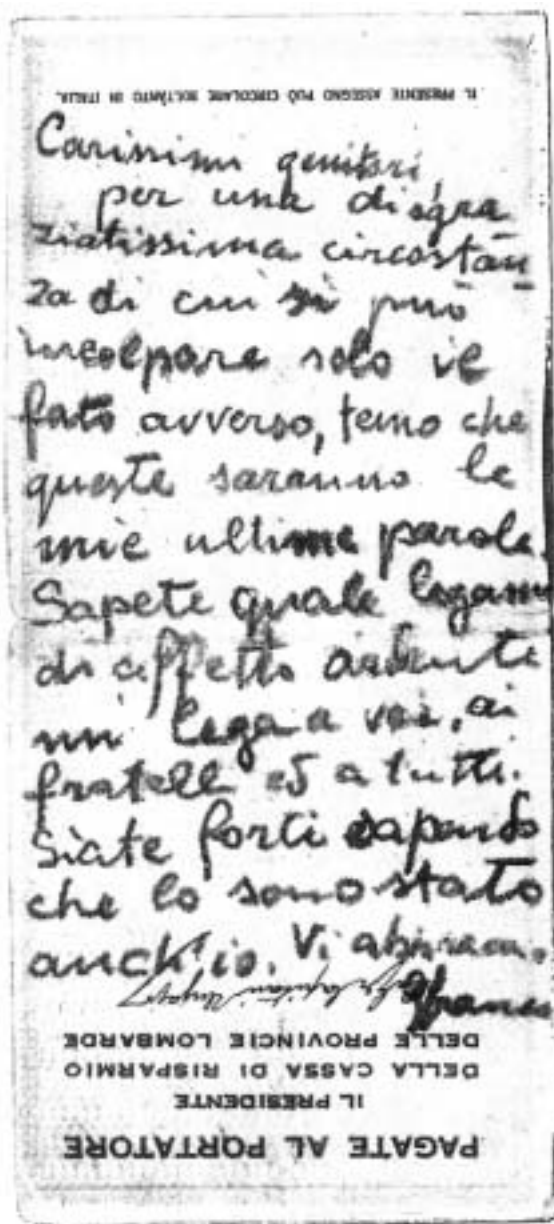 IL PRESENTE ASSEGNO PUÒ CIRCOLARE SOLTANTO IN ITALIA.
Carissimi genitori,
per una disgra
ziatissima circostan
za di cui si può
incolpare solo il
fato avverso, temo che
queste saranno le
mie ultime parole.
Sapete quale legame
di affetto ardente
mi lega a voi, ai
fratelli ed a tutti.
Siate forti sapendo
che lo sono stato
anch'io. Vi abbraccio.
Franco
DELLE PROVINCIE LOMBARDE
DELLA CASSA DI RISPARMIO
IL PRESIDENTE
PAGATE AL PORTATORE